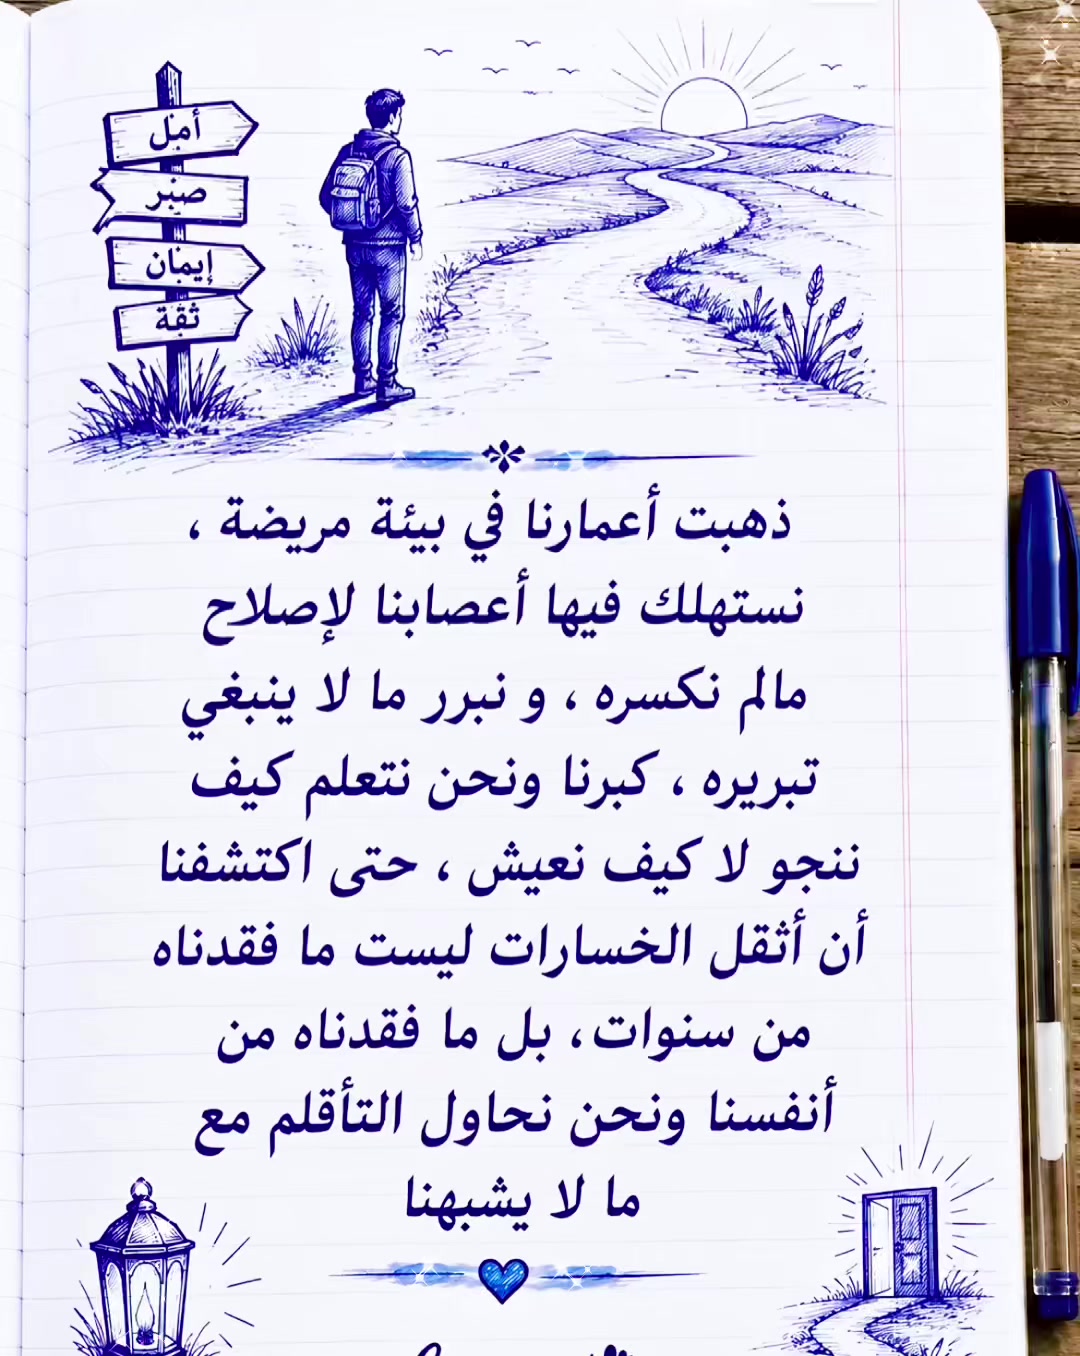 أمل
صبر
إيمان
ثقة
ذهبت أعمارنا في بيئة مريضة ،
نستهلك فيها أعصابنا لإصلاح
مالم نكسره ، و نبرر ما لا ينبغي
تبريره ، كبرنا ونحن نتعلم كيف
ننجو لا كيف نعيش ، حتى اكتشفنا
أن أثقل الخسارات ليست ما فقدناه
من سنوات، بل ما فقدناه من
أنفسنا ونحن نحاول التأقلم مع
ما لا يشبهنا